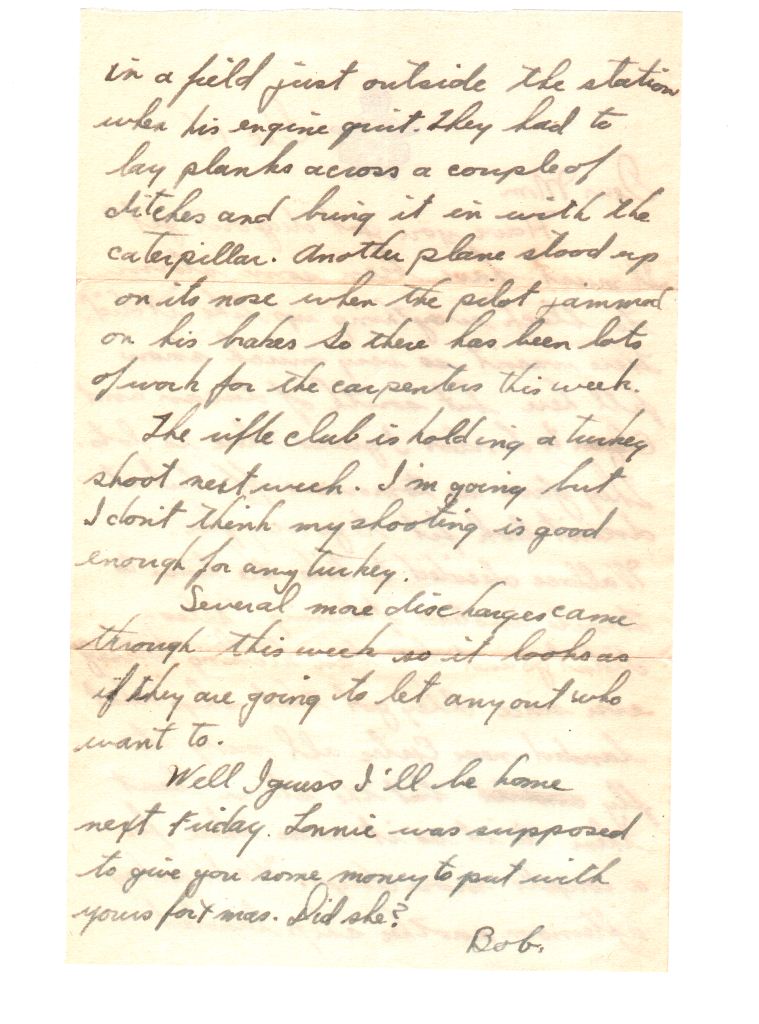 in a field just outside the station
when his engine quit. They had to
lay planks across a couple of
ditches and bring it in with the
caterpillar. Another plane stood up
on its nose when the pilot jammed
on his brakes So there has been lots
of work for the carpenters this week.
The rifle club is holding a turkey
shoot next week. I'm going but
I don't think my shooting is good
enough for any turkey.
Several more discharges came
through this week so it looks as
if they are going to let any out who
want to.
Well I guess I'll be home
next Friday. Lonnie was supposed
to give you some money to put with
yours for Xmas. Did she?
Bob.